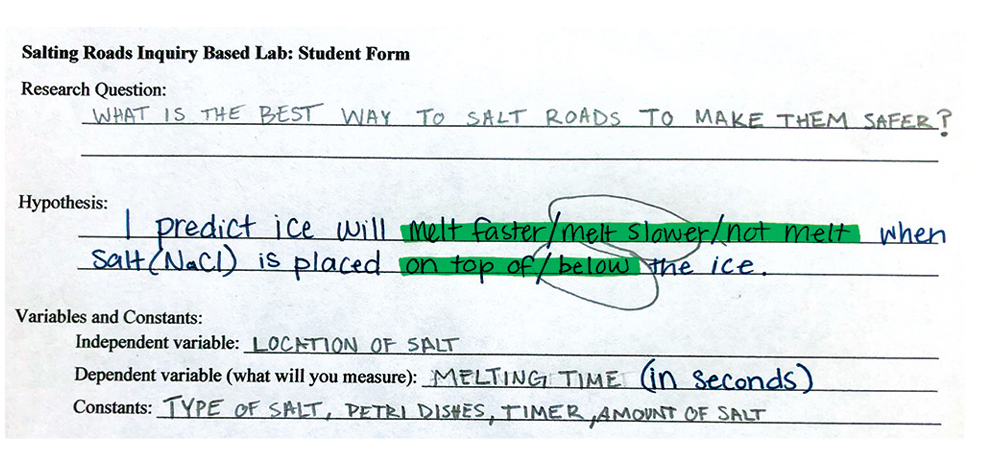 Salting Roads Inquiry Based Lab: Student Form
Research Question:
WHAT IS THE BEST WAY TO SALT ROADS TO MAKE THEM SAFER?
Hypothesis:
I predict ice will melt faster/melt slower/not melt when
salt (NaCl) is placed on top of/below the ice.
Variables and Constants:
Independent variable: LOCATION OF SALT
Dependent variable (what will you measure): MELTING TIME (in seconds)
Constants: TYPE OF SALT, PETRI DISHES, TIMER, AMOUNT OF SALT